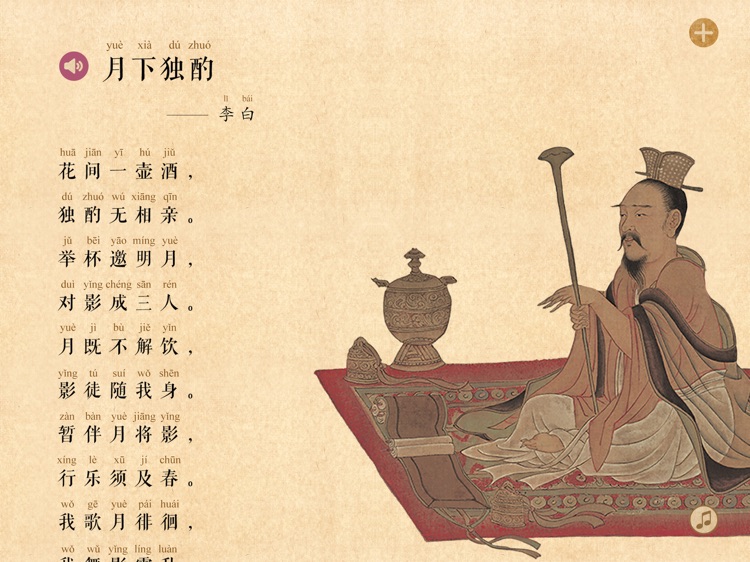 yuè xià dú zhuó
月下独酌
lǐ bái
—— 李白
huā jiān yī hú jiǔ
花间一壶酒，
dú zhuó wú xiāng qīn
独酌无相亲。
jǔ bēi yāo míng yuè
举杯邀明月，
duì yǐng chéng sān rén
对影成三人。
yuè jì bù jiě yǐn
月既不解饮，
yǐng tú suí wǒ shēn
影徒随我身。
zàn bàn yuè jiāng yǐng
暂伴月将影，
xíng lè xū jí chūn
行乐须及春。
wǒ gē yuè pái huái
我歌月徘徊，
wǒ wǔ yǐng líng luàn